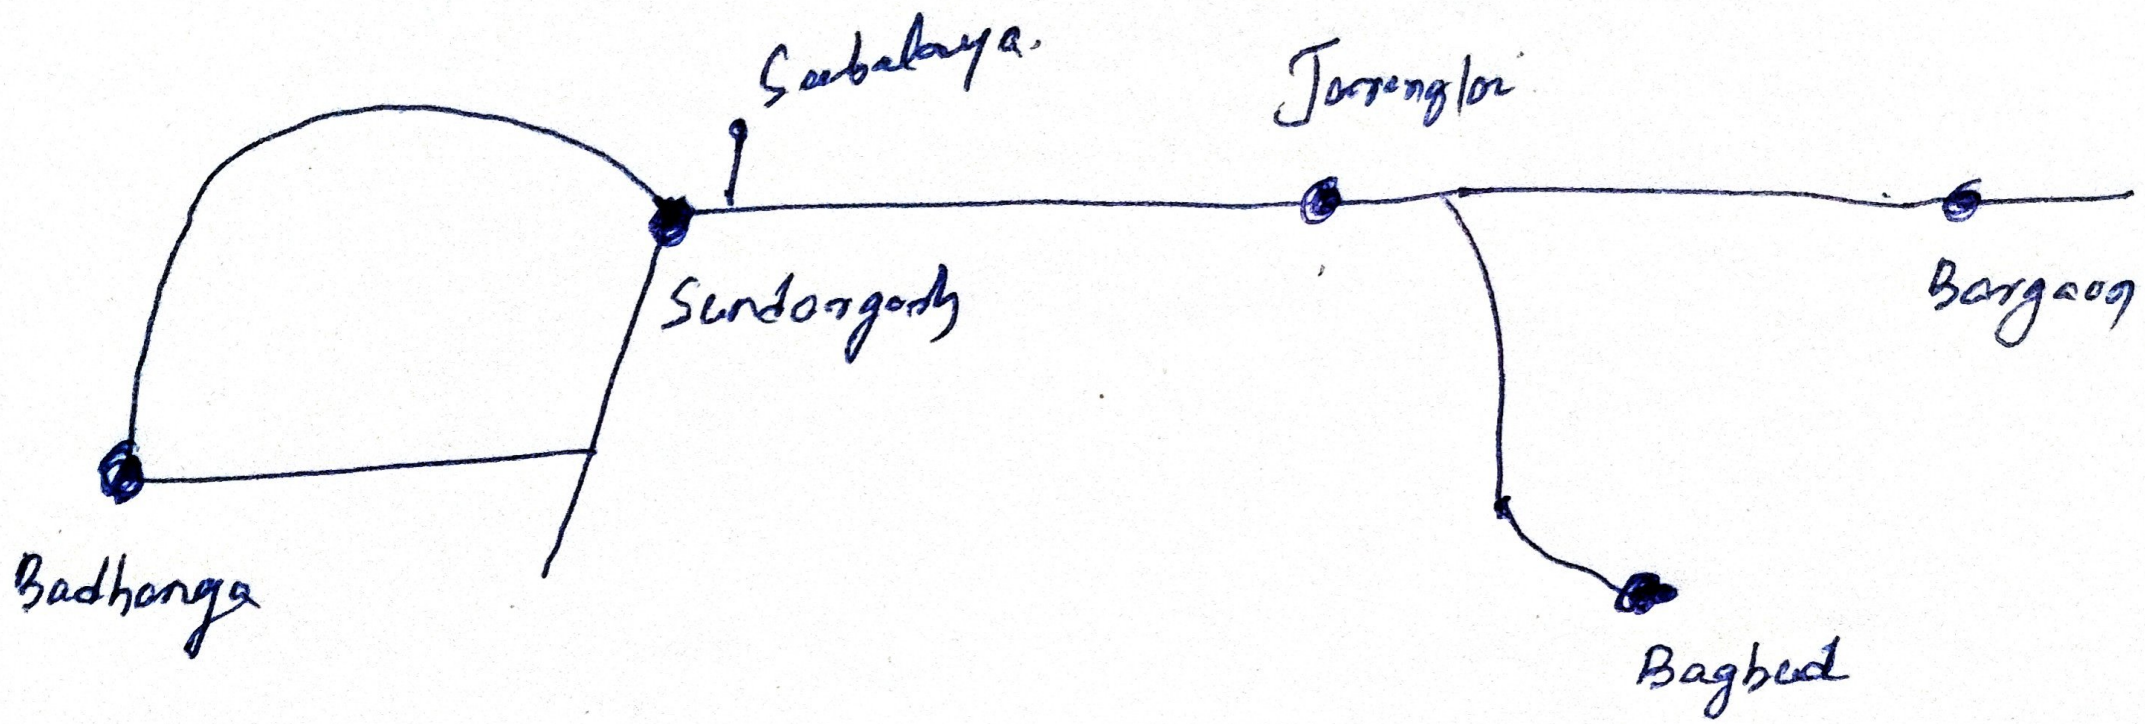 Saubalaya.
Jarrengloi
Sundargarh
Bargaon
Badhanga
Bagbud